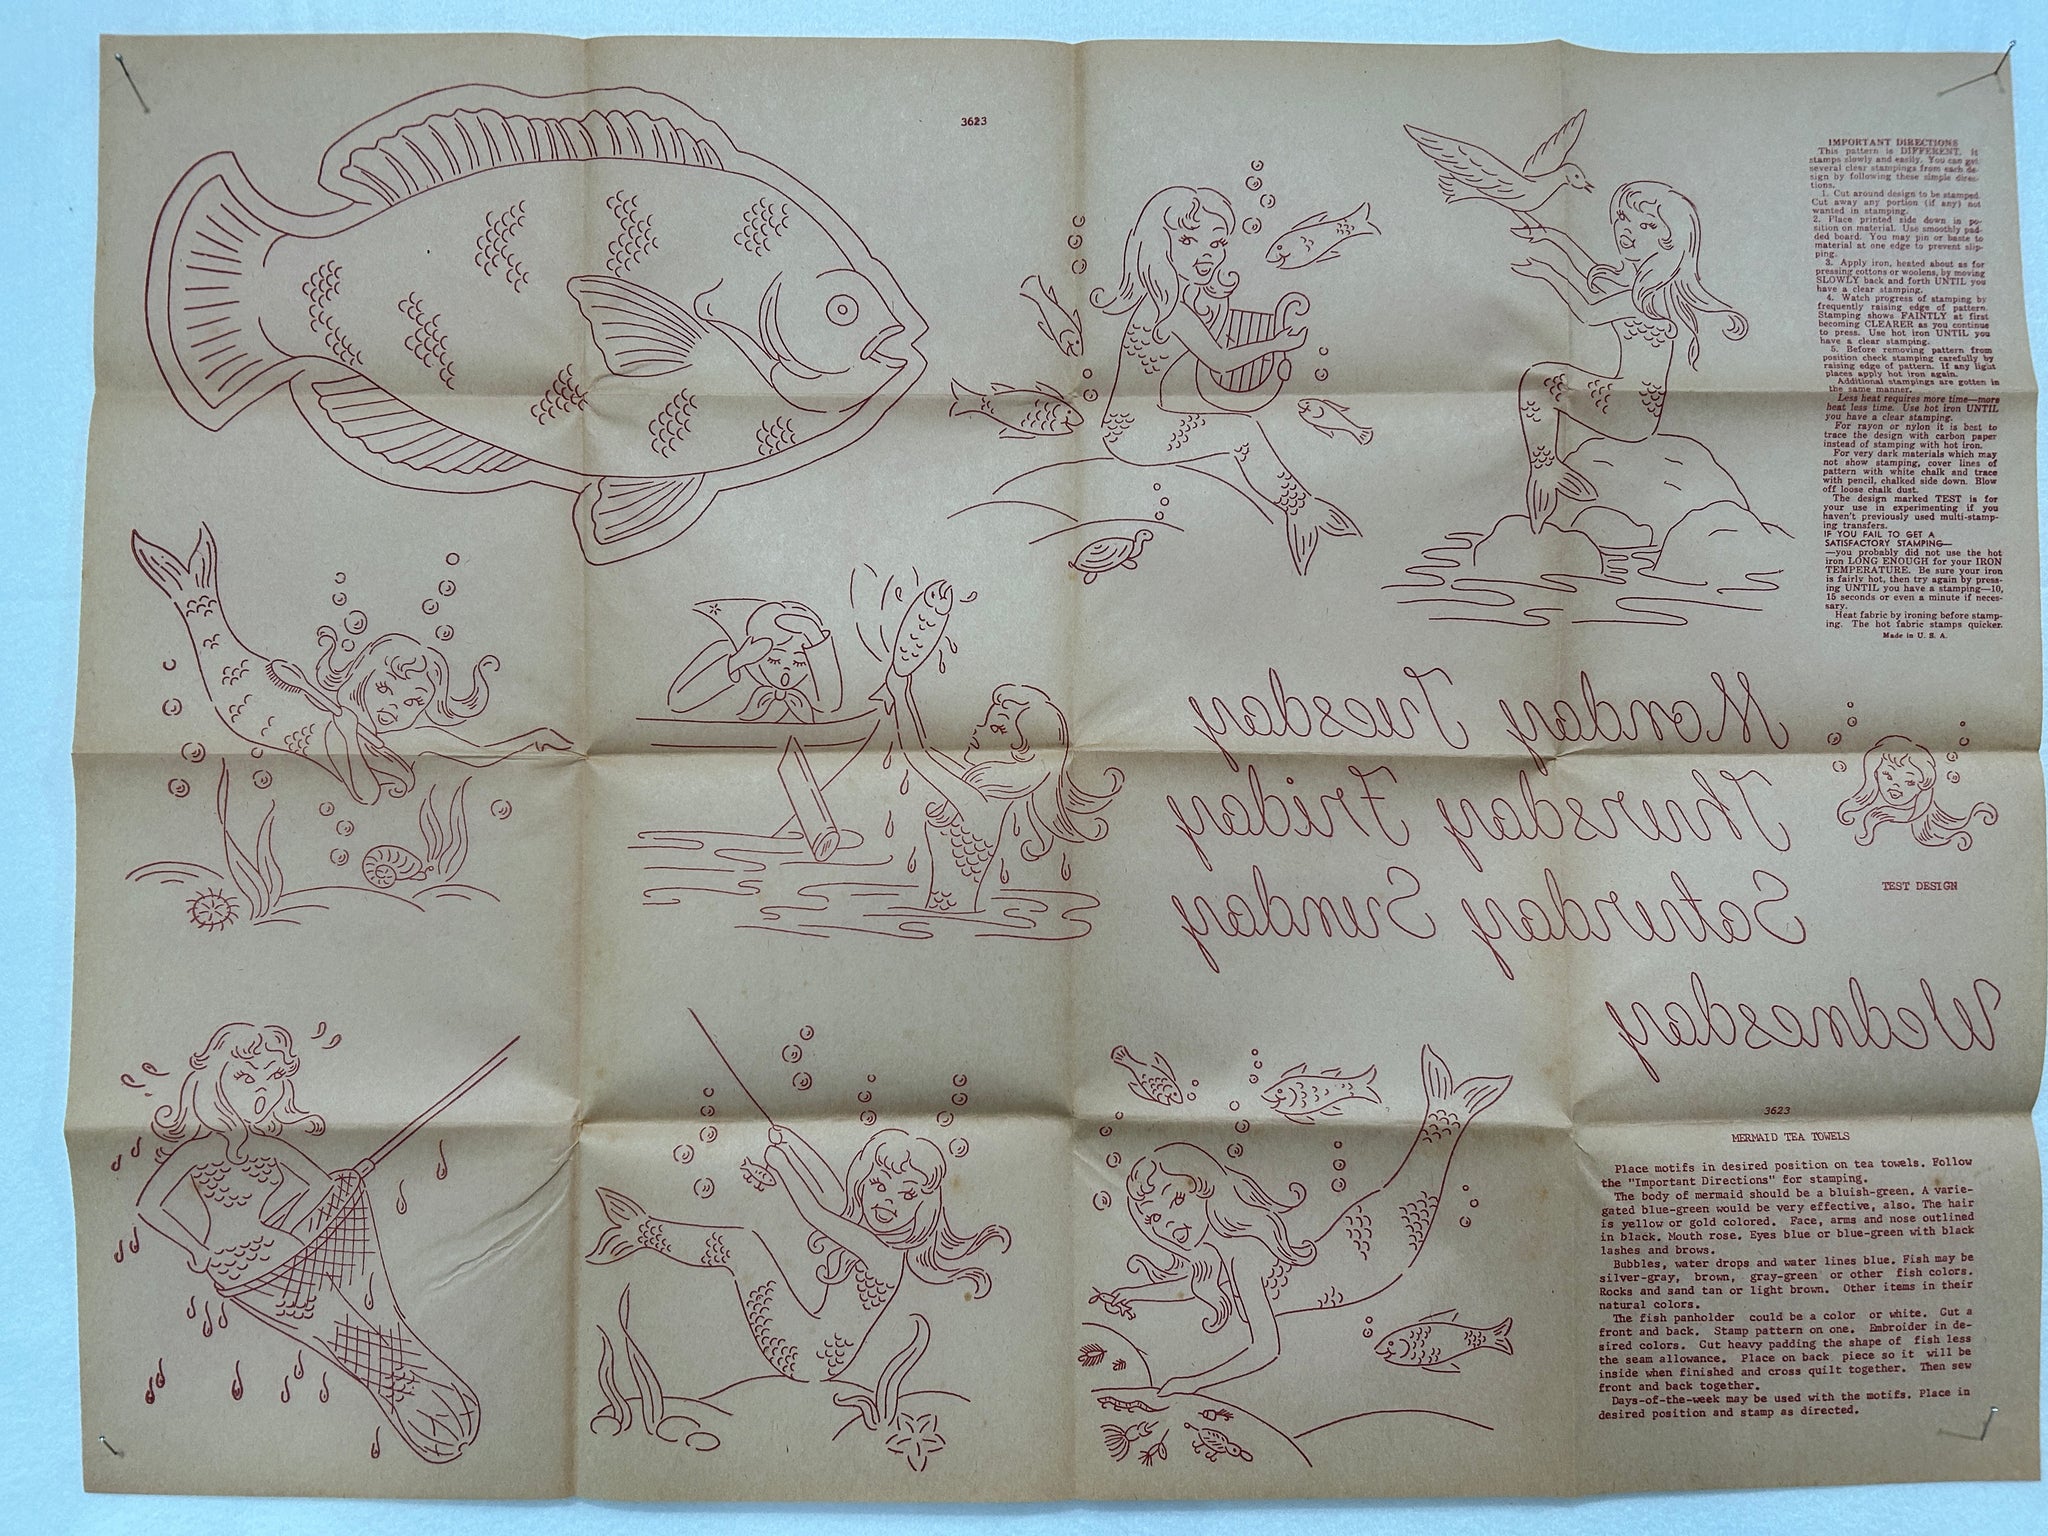 3623
IMPORTANT DIRECTIONS
This pattern is DIFFERENT. It
stamps slowly and easily. You can get
several clear stampings from each de-
sign by following these simple direc-
tions.
1. Cut around design to be stamped.
Cut away any portion (if any) not
wanted in stamping.
2. Place printed side down in po-
sition on material. Use smoothly pad-
ded board. You may pin or baste to
material at one edge to prevent slip-
ping.
3. Apply iron, heated about as for
pressing cottons or woolens, by moving
SLOWLY back and forth UNTIL you
have a clear stamping.
4. Watch progress of stamping by
frequently raising edge of pattern.
Stamping shows FAINTLY at first
becoming CLEARER as you continue
to press. Use hot iron UNTIL you
have a clear stamping.
5. Before removing pattern from
position check stamping carefully by
raising edge of pattern. If any light
places apply hot iron again.
Additional stampings are gotten in
the same manner.
Less heat requires more time—more
heat less time. Use hot iron UNTIL
you have a clear stamping.
For rayon or nylon it is best to
trace the design with carbon paper
instead of stamping with hot iron.
For very dark materials which may
not show stamping, cover lines of
pattern with white chalk and trace
with pencil, chalked side down. Blow
off loose chalk dust.
The design marked TEST is for
your use in experimenting if you
haven't previously used multi-stamp-
ing transfers.
IF YOU FAIL TO GET A
SATISFACTORY STAMPING—
—you probably did not use the hot
iron LONG ENOUGH for your IRON
TEMPERATURE. Be sure your iron
is fairly hot, then try again by press-
ing UNTIL you have a stamping—10,
15 seconds or even a minute if neces-
sary.
Heat fabric by ironing before stamp-
ing. The hot fabric stamps quicker.
Made in U. S. A.
Monday Tuesday
Thursday Friday
Saturday Sunday
Wednesday
TEST DESIGN
3623
MERMAID TEA TOWELS
Place motifs in desired position on tea towels. Follow
the "Important Directions" for stamping.
The body of mermaid should be a bluish-green. A varie-
gated blue-green would be very effective, also. The hair
is yellow or gold colored. Face, arms and nose outlined
in black. Mouth rose. Eyes blue or blue-green with black
lashes and brows.
Bubbles, water drops and water lines blue. Fish may be
silver-gray, brown, gray-green or other fish colors.
Rocks and sand tan or light brown. Other items in their
natural colors.
The fish panholder could be a color or white. Cut a
front and back. Stamp pattern on one. Embroider in de-
sired colors. Cut heavy padding the shape of fish less
the seam allowance. Place on back piece so it will be
inside when finished and cross quilt together. Then sew
front and back together.
Days-of-the-week may be used with the motifs. Place in
desired position and stamp as directed.